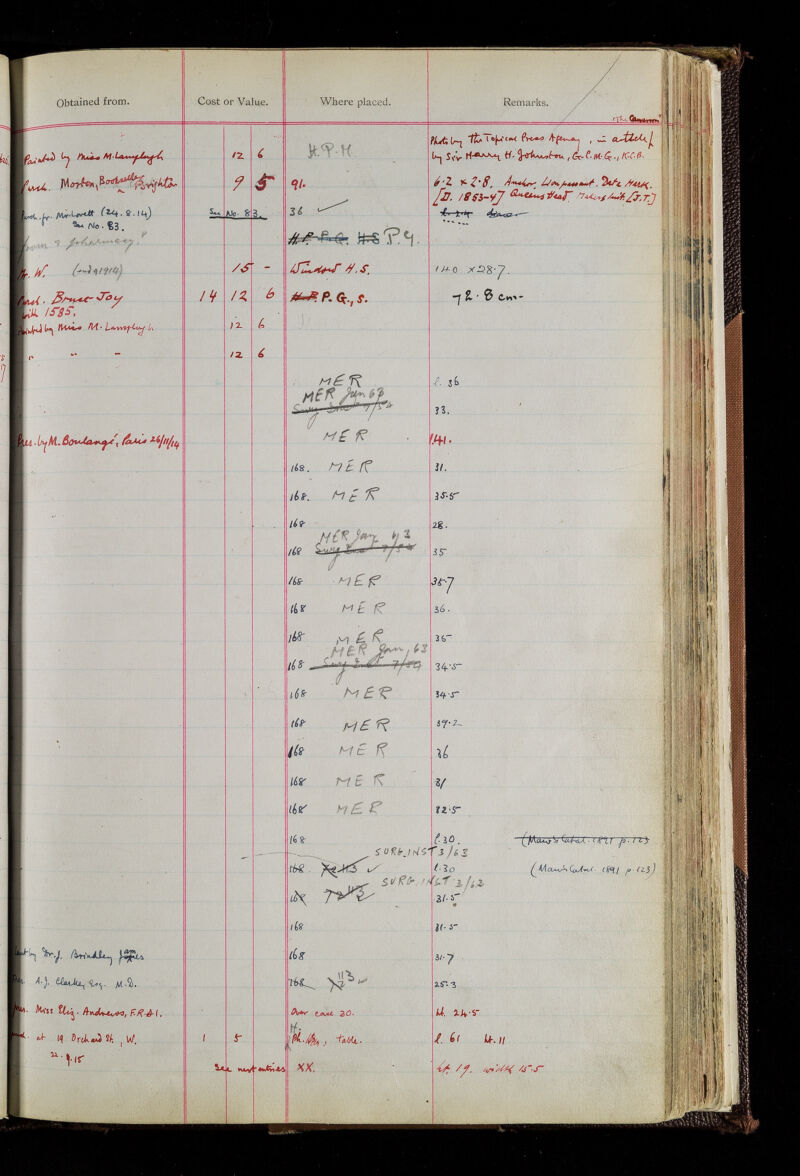 Obtained from. Cost or Value. Where placed. Remarks.
Painted by Miss M. Langleygh 12 6 H.P.H Photo by The Topical Press Agency, in article
by Sir Harry H. Johnston, G.C.M.G., K.C.B.
Purch. Morton, Bookseller, Brighton 9 5 91. 6·2 x 2·8. Anchor, Lion passant. Date Mark.
[D. 1853-4] Queens Head, Makers Init. [J.T.]
Purch. fr. Mr. Lovett (24.8.14) See No. 83. 36 ✓
See No. 83.
from a pharmacy?
H.P. P.G. HS P.G.
H. W. (end 91914) 15 - Windows H.S. 140 x 28·7.
Purch. Bruce Joy 14 12 6 H.P. P. G., S. 72·8 cm-
with 1585.
Painted by Miss M. 12 6
" " " 12 6
MER l. 36
MER Jan 63
33.
Pres. by M. Boulangé, Paris 26/11/14 MER 141.
168. MER 31.
168. MER 35·5
168 28.
MER Jan 63
168 35
168 MER 35·7
168 MER 36.
168 MER 36
MER Jan, 63
168 34·5
168 MER 34·5
168 MER 39·2
168 MER 36
168 MER 31
168 MER 32·5
168 l. 30. (Maw's Catal. 1891 p. 123
SURG. INST 3/63
168. 113 ✓ l. 30 (Maw's Catal. 1891 p. 123)
SURG. INST 3/63
168 113 31·5
168 31·5
Lent by Dr. J. Brindley James 168 31·7
A. J. Clarke, Esq. M.D. 168 113 25·3
Pres. Miss Eliz. Andrews, F.R.A.I. Over case 20. ht. 24·5
at 19 Orchard St., W. 1 5 H. table. l. 61 ht. 11
22.9.15
See next entries XX. ht. 19. width 15·5